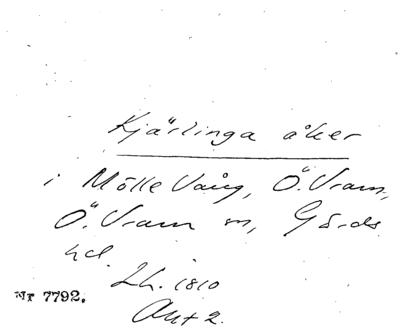 Kjärlinga åker
i Mölle Vång, Ö. Vram,
Ö. Vram sn, Gärds
hd.
Lh. 1810
Akt 2.
Nr 7792.